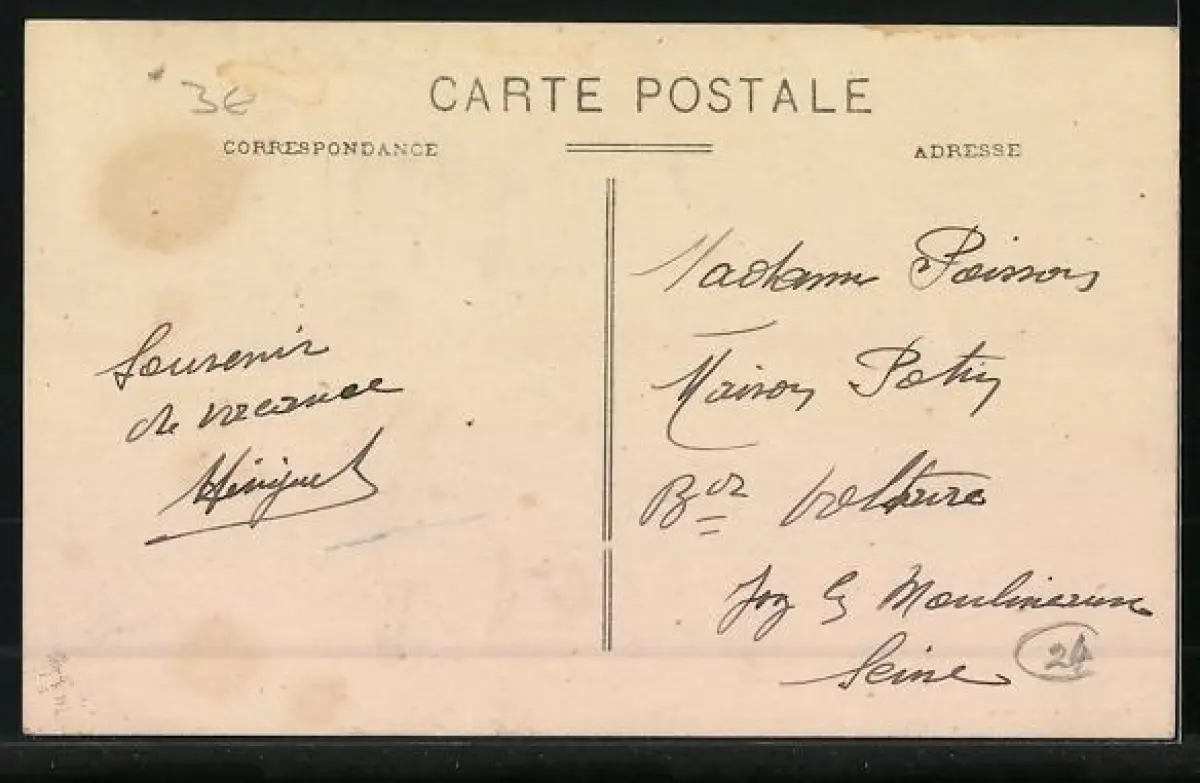 CARTE POSTALE
3€
CORRESPONDANCE
ADRESSE
Souvenir
de vacance
Madame Poisson
Maison
Bd Voltaire
Issy les Moulineaux
Seine
24